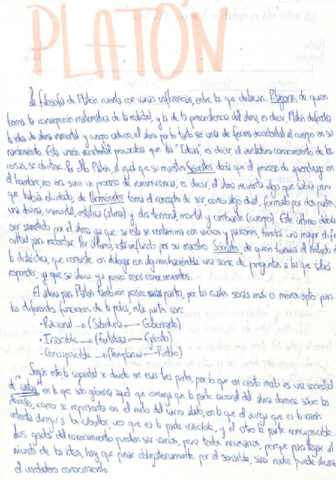 PLATÓN
La filosofía de Platón cuenta con varias influencias, entre las que destacan: Pitágoras, de quien
toma la concepción matemática de la realidad, y la de la preexistencia del alma, es decir, Platón defiende
la idea de alma inmortal y cuerpo, el alma por lo tanto se une de forma accidental al cuerpo en su
nacimiento. Esta unión accidental provocaba que las "Ideas", es decir, el verdadero conocimiento de las
cosas, se olvidase. Por ello Platón, al igual que su maestro Sócrates, decía que el proceso de aprendizaje en
el hombre, no era sino un proceso de reminiscencia, es decir, el alma recuerda algo que sabía pero
que había olvidado, de Parménides toma el concepto de ser, como algo dual, formado por dos partes
una divina, inmortal, estática (alma) y otra terrenal, mortal y cambiante (cuerpo). Este último deberá
ser sometido por el alma ya que si esta se contamina con vicios y pasiones, tendrá una mayor difi-
cultad para recordar. Por último, está influido por su maestro Sócrates, de quien tomará el método de
la dialéctica, que consiste en dialogar con alguien haciéndole una serie de preguntas a las que sabrá
responder, ya que su alma ya posee esos conocimientos.
El alma para Platón también posee partes, por las cuales serás más o menos apto para
las diferentes funciones de la polis, estas partes son:
• Racional → (Sabiduría → Gobernante)
• Irascible → (Fortaleza → Ejército)
• Concupiscible → (Templanza → Pueblo)
Según esto la sociedad se divide en esas tres partes, por lo que en cierto modo es una sociedad
de castas, en la que solo gobernará aquel que consiga que la parte racional del alma domine sobre las
demás, como se representa en el mito del carro alado, en la que el auriga que es la razón
intenta dirigir a los caballos, uno que es la parte irascible, y el otro la parte concupiscible.
Los grados del conocimiento pueden ser varios, pero todos necesarios, porque para llegar al
mundo de las ideas, hay que pasar obligatoriamente por el sensible, sino nadie puede alcanzar
el verdadero conocimiento.